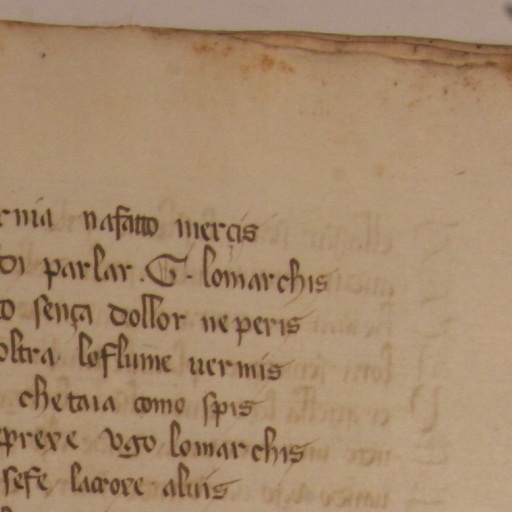 rnia nafatto merçis
di parlar .G. lomarchis
sença dollor ne peris
oltra loflume uermis
che taia como spis
prexe vgo lomarchis
sefe lacroxe aluis